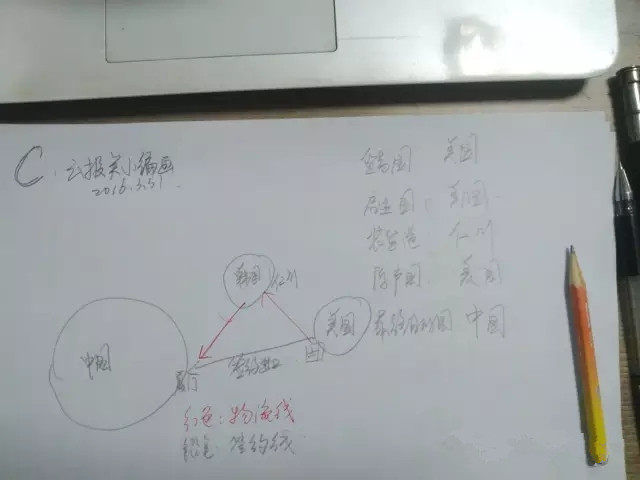 C. 云报关小编画
2016.3.31
贸易国 美国
启运国: 美国
装货港: 仁川
原产国: 美国
最终目的国 中国
韩国 仁川
中国
美国
厦门
签约
红色: 物流线
铅色: 签约线